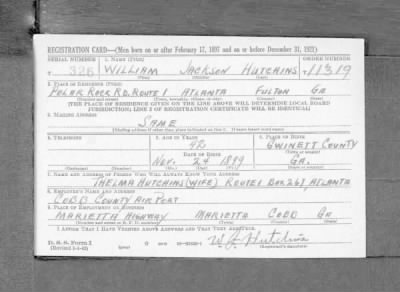 REGISTRATION CARD—(Men born on or after February 17, 1897 and on or before December 31, 1921)
SERIAL NUMBER 1. NAME (Print) ORDER NUMBER
326 WILLIAM JACKSON HUTCHINS 11319
(First) (Middle) (Last)
2. PLACE OF RESIDENCE (Print)
POLAR ROCK RD. ROUTE 1 ATLANTA FULTON GA
(Number and street) (Town, township, village, or city) (County) (State)
[THE PLACE OF RESIDENCE GIVEN ON THE LINE ABOVE WILL DETERMINE LOCAL BOARD
JURISDICTION; LINE 2 OF REGISTRATION CERTIFICATE WILL BE IDENTICAL]
3. MAILING ADDRESS
SAME
[Mailing address if other than place indicated on line 2. If same insert word same]
4. TELEPHONE 5. AGE IN YEARS 6. PLACE OF BIRTH
42 GWINETT COUNTY
DATE OF BIRTH (Town or county)
NOV. 24 1899 GA.
(Exchange) (Number) (Mo.) (Day) (Yr.) (State or country)
7. NAME AND ADDRESS OF PERSON WHO WILL ALWAYS KNOW YOUR ADDRESS
THELMA HUTCHINS (WIFE) ROUTE 1 BOX 261 ATLANTA
8. EMPLOYER'S NAME AND ADDRESS
COBB COUNTY AIRPORT
9. PLACE OF EMPLOYMENT OR BUSINESS
MARIETTA HIGHWAY MARIETTA COBB GA
(Number and street or R. F. D. number) (Town) (County) (State)
I AFFIRM THAT I HAVE VERIFIED ABOVE ANSWERS AND THAT THEY ARE TRUE.
D. S. S. Form 1
(Revised 1-1-42) (over) W. J. Hutchins
(Registrant's signature)